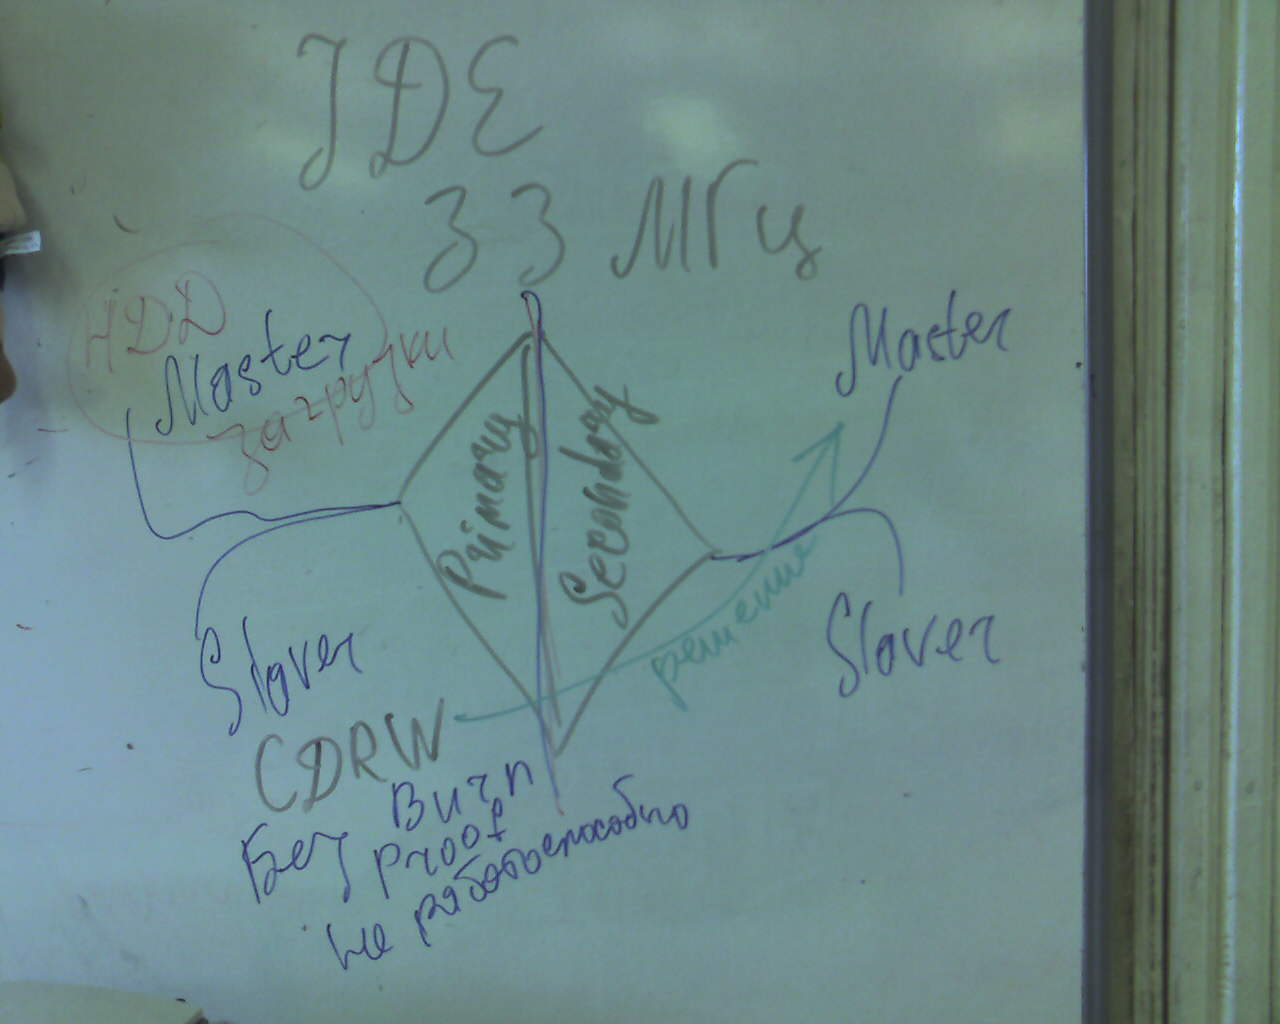 IDE
33 МГц
HDD
Master
загрузки
Master
Primary
Secondary
Slaver
Slaver
решение
CDRW
Без Burn
Proof
не работоспособно